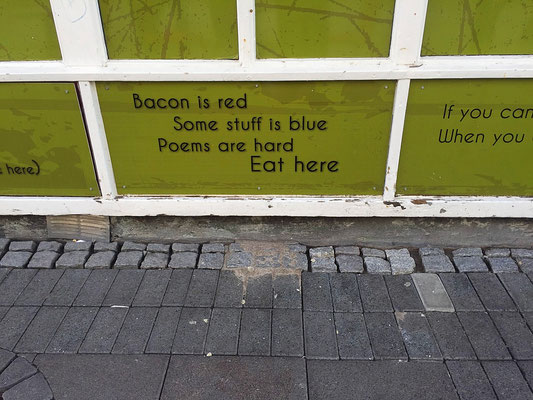 Bacon is red
Some stuff is blue
Poems are hard
Eat here
here)
If you can
When you